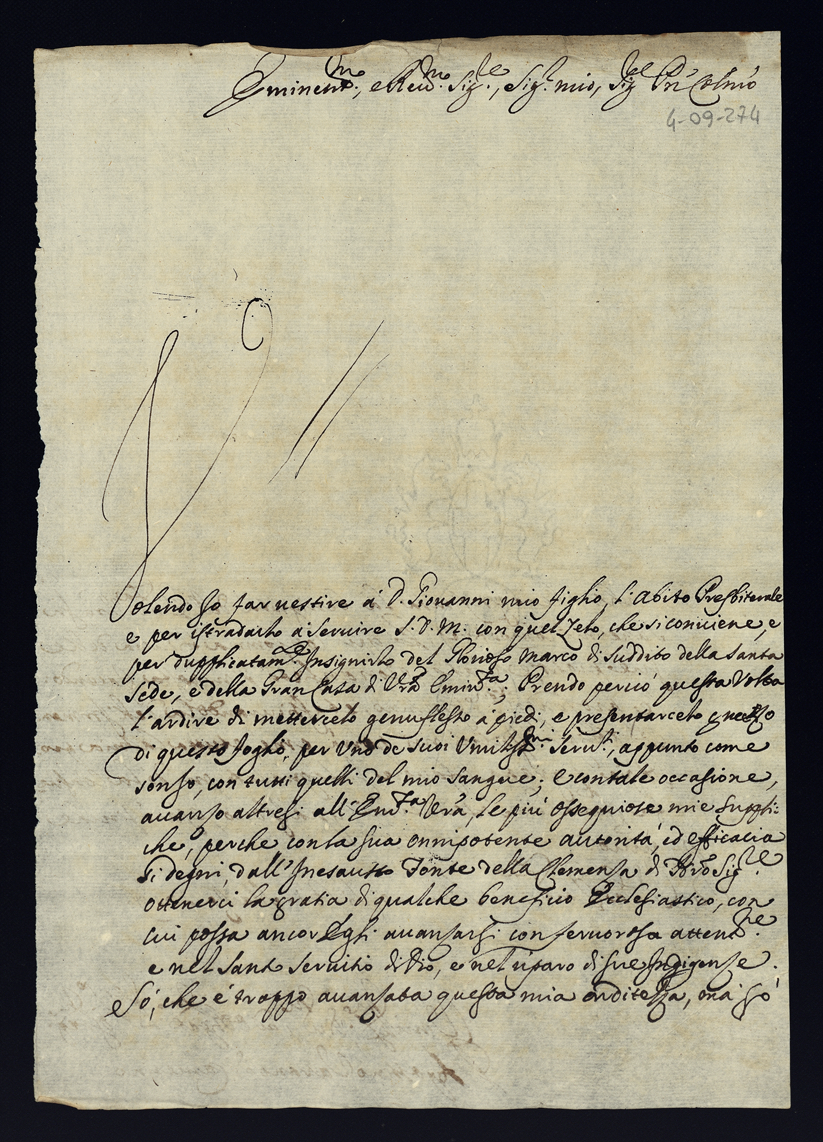 Eminent.mo, e Reu.mo Sig.re, Sig.r mio, Sig.re Prn Colmo
4-09-274
Volendo Io far uestire à D. Giouanni mio figlio, l'Abito Presbiterale
e per istradarlo à Seruire S. D. M. con quel Zelo, che si conuiene, e
per dupplicatam.te Insignirlo del Glorioso Marco di Suddito della Santa
Sede, e della Gran Casa di Vrã Emin.za; Prendo perciò questa Volta
l'ardire di metterlo genuflesso a piedi, e presentarcelo
di questo foglio, per Vno de Suoi Vmiliss.mi Seru.ri, appunto come
sonso, con tutti quelli del mio Sangue; e con tale occasione,
auanso altresi all'Em.za Vrã, le più ossequiose mie Suppli:
che, perche con la Sua onnipotente autorità, ed efficacia
Si degni dall'Inesausto Fonte della Clemensa di Nro Sig.re
ottenerci la gratia di qualche beneficio Ecclesiastico, con
cui possa ancor Egli auansarsi con feruorosa attent.ne
e nel Sant Seruitio di Dio, e nel riparo di Sue Indigense.
Só, che é troppo auansata questa mia arditessa, ma só